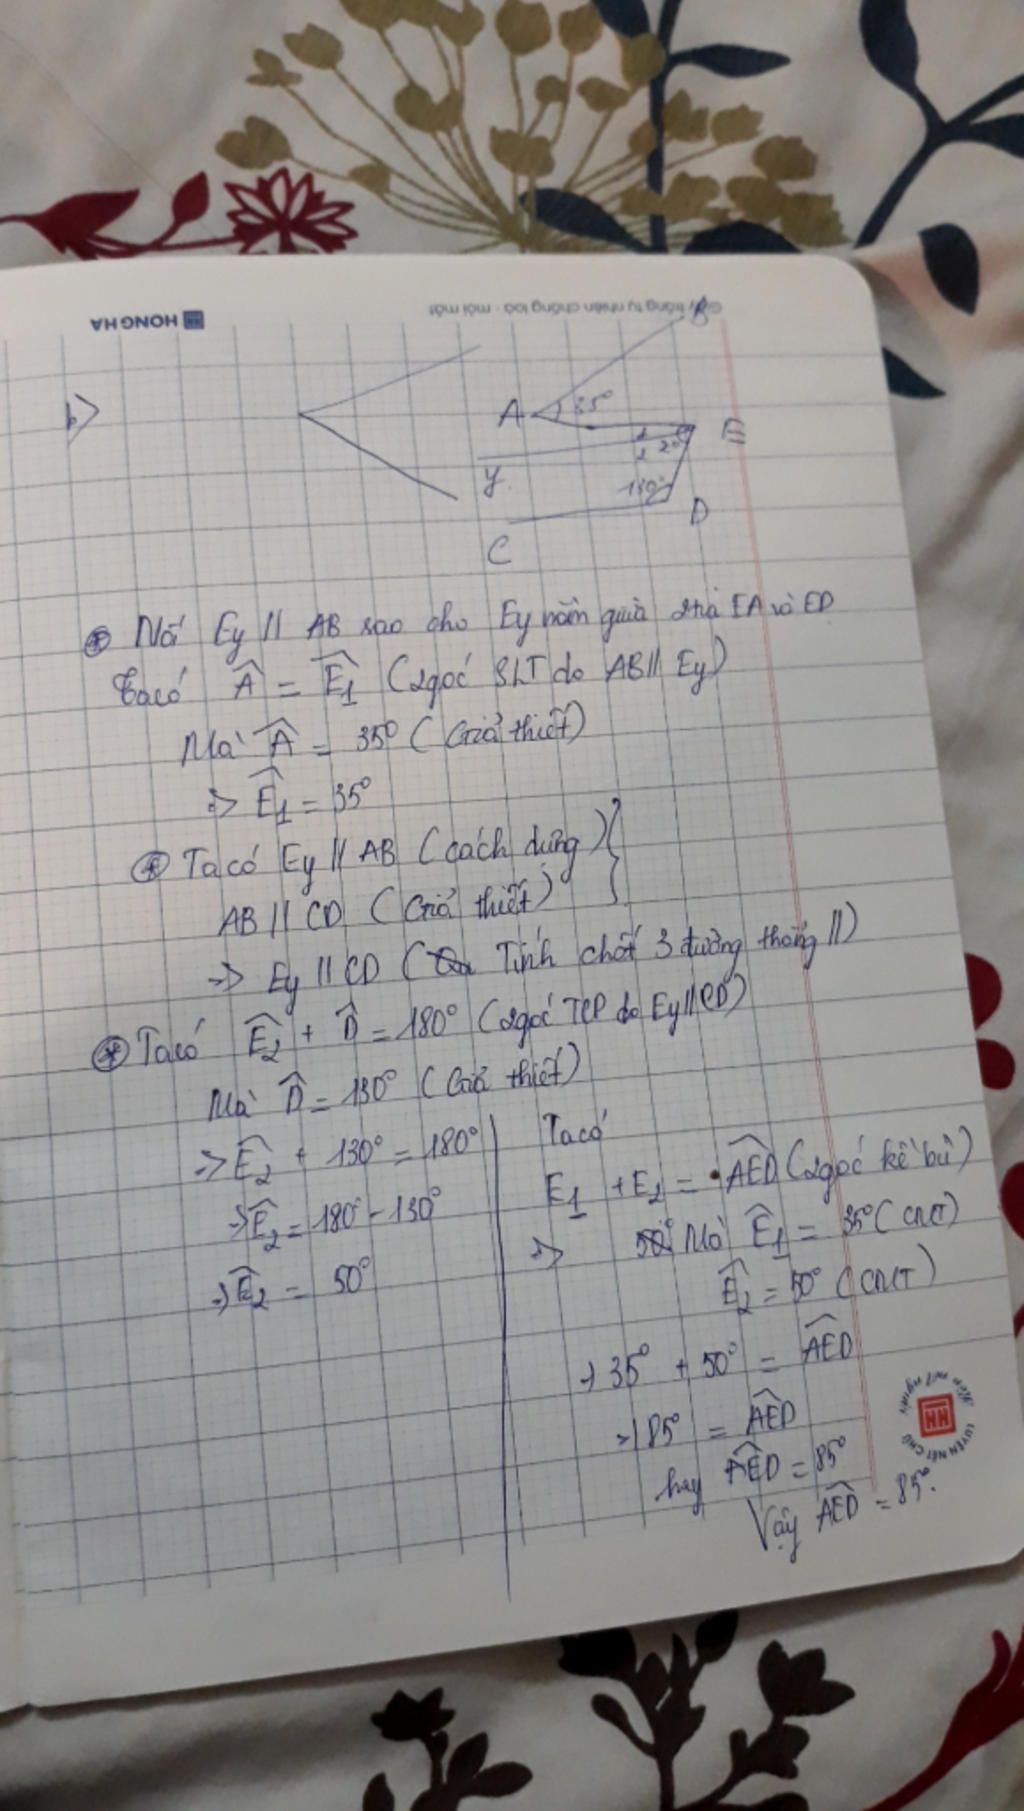 HONG HA
Giấy trắng tự nhiên chống loá - mỏi mắt
b>
B
A 35°
E
1
2 2
y
130°
D
C
Nối Ey // AB sao cho Ey nằm giữa 2 tia EA và ED
Ta có Â = Ê1 (2 góc SLT do AB // Ey)
Mà Â = 35° (Giả thiết)
=> Ê1 = 35°
Ta có Ey // AB (cách dựng)
AB // CD (Giả thiết)
=> Ey // CD (Tính chất 3 đường thẳng //)
Ta có Ê2 + D̂ = 180° (2 góc TCP do Ey // CD)
Mà D̂ = 130° (Giả thiết)
=> Ê2 + 130° = 180°
=> Ê2 = 180° - 130°
=> Ê2 = 50°
Ta có
E1 + E2 = AED (2 góc kề bù)
=> Mà Ê1 = 35° (CMT)
Ê2 = 50° (CMT)
→ 35° + 50° = AED
→ 85° = AED
hay AED = 85°
Vậy AED = 85°.
LUYỆN NÉT CHỮ
RÈN NẾT NGƯỜI